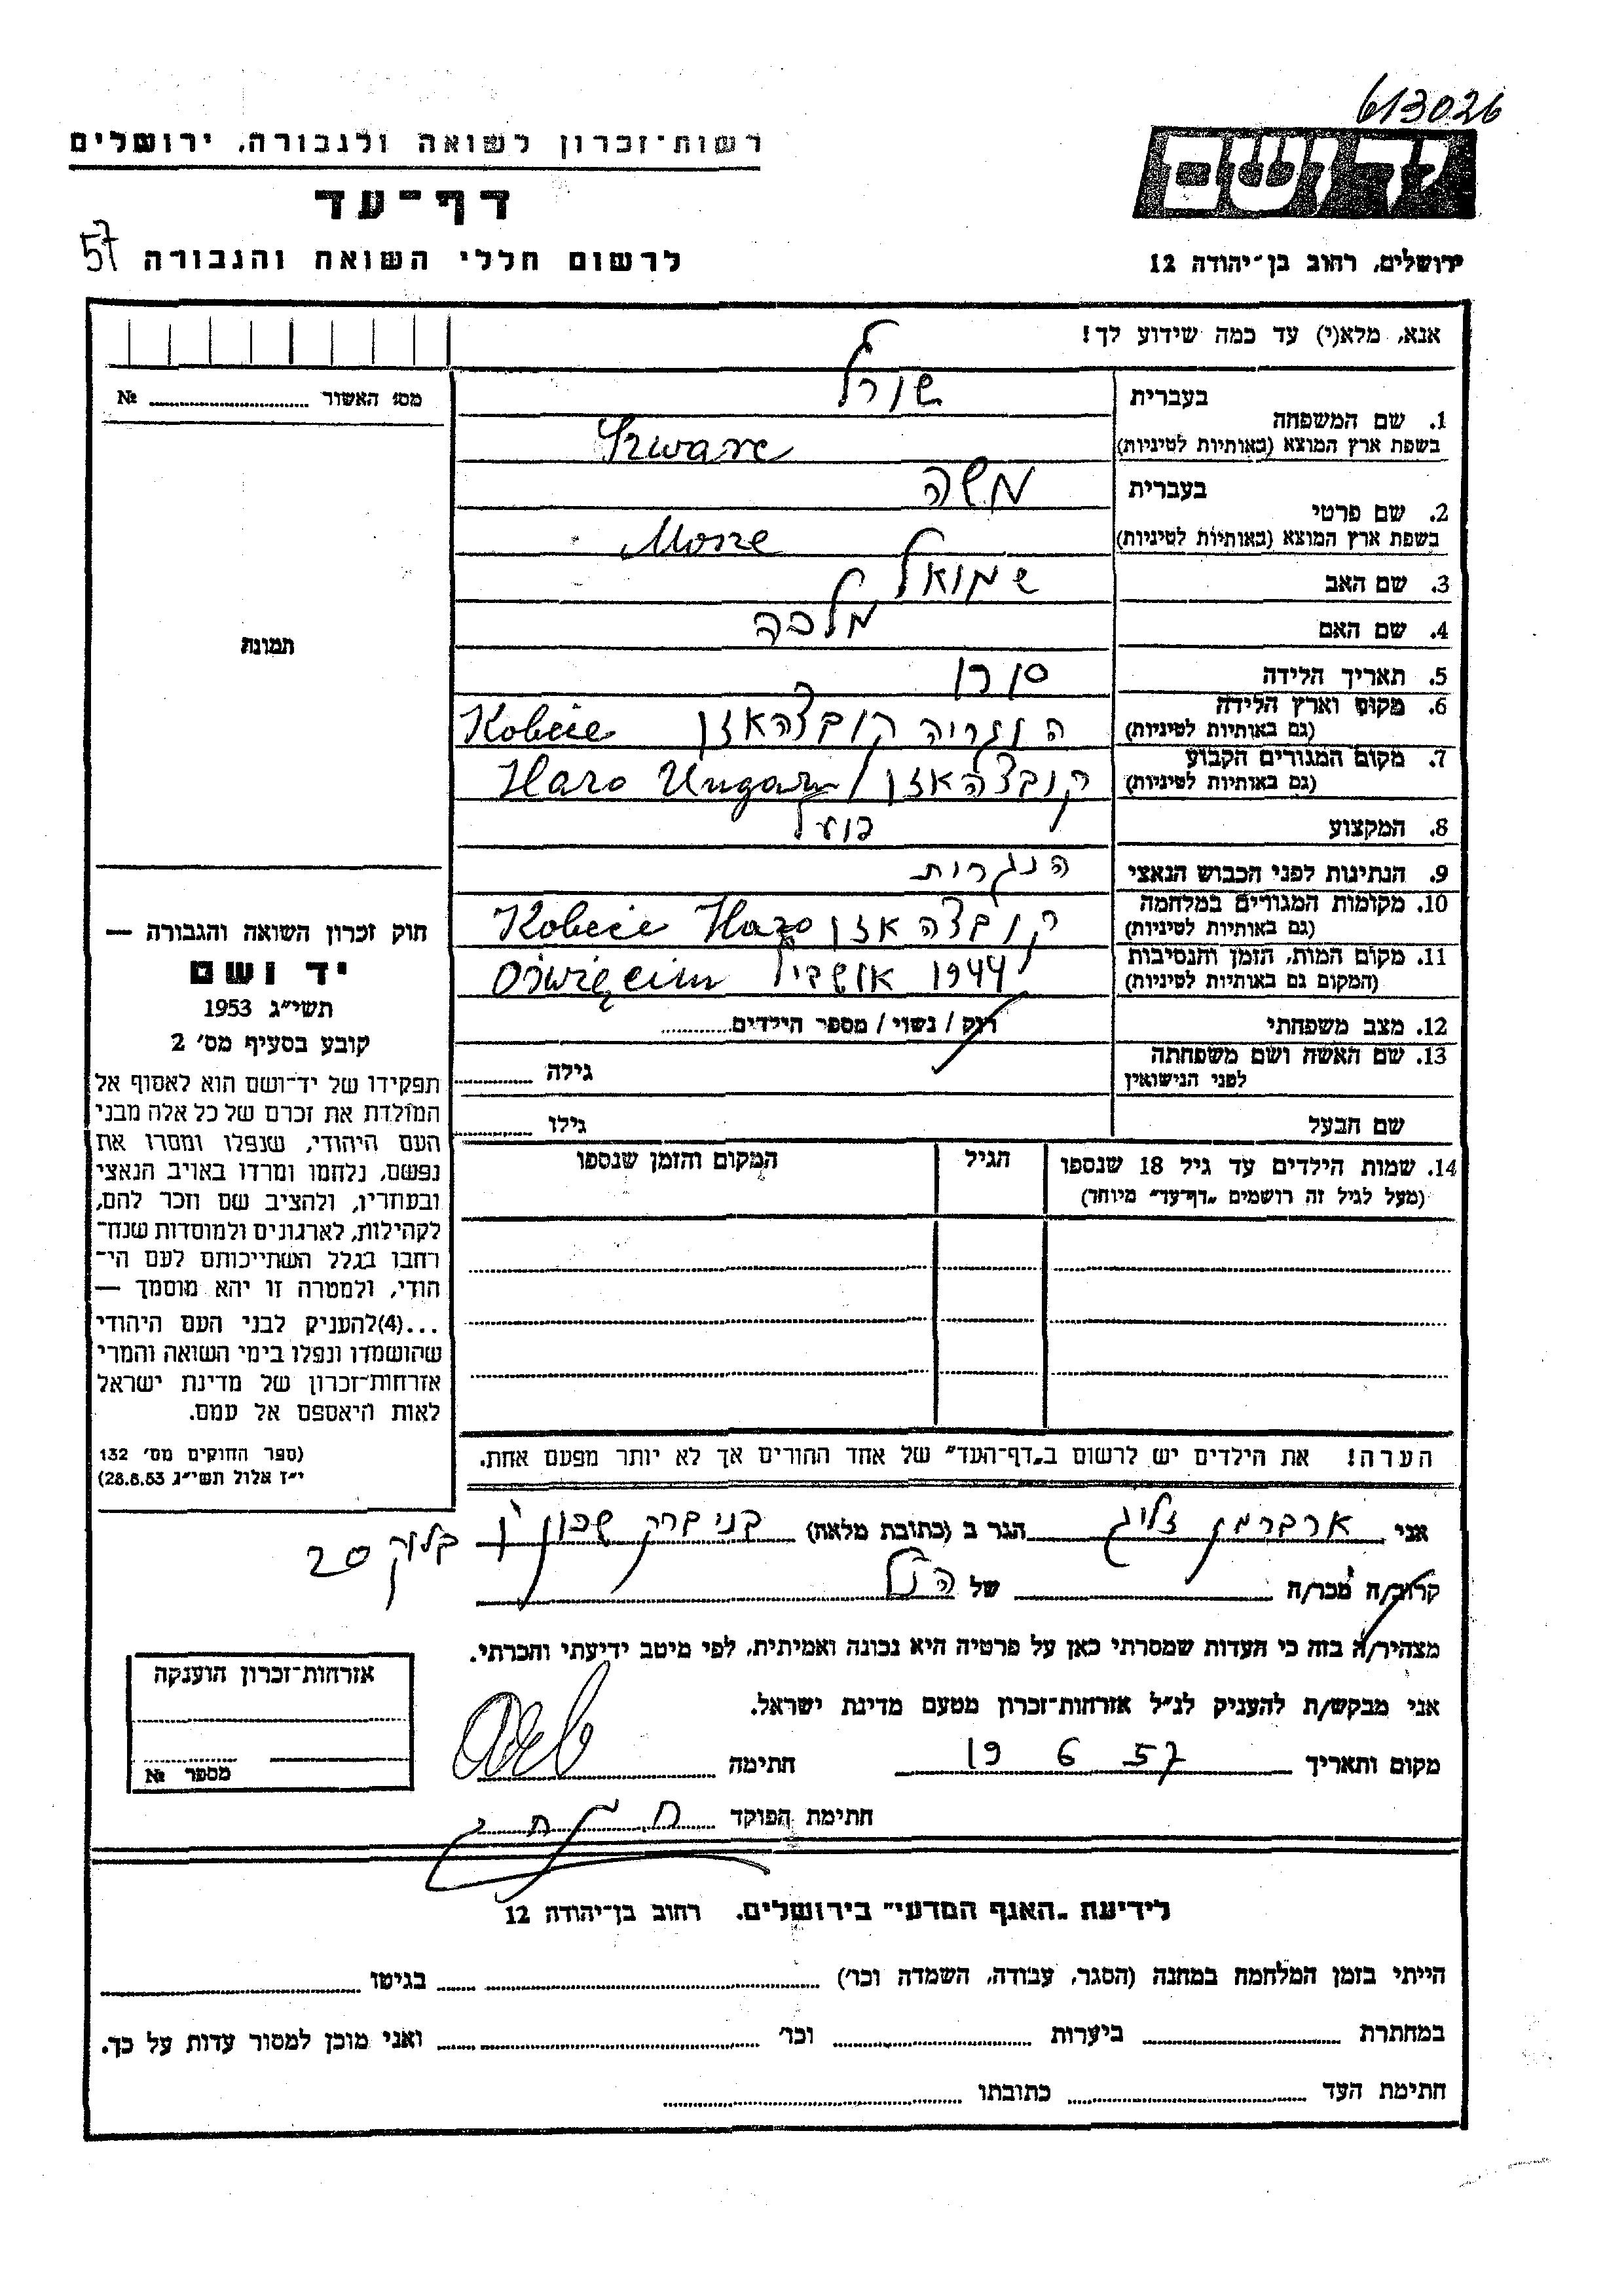 613026
יד ושם
ירושלים, רחוב בן־יהודה 12
רשות־זכרון לשואה ולגבורה, ירושלים
דף־עד
לרשום חללי השואה והגבורה 57
אנא, מלא(י) עד כמה שידוע לך!
מס׳ האשור № 
1. שם המשפחה
בעברית
בשפת ארץ המוצא (באותיות לטיניות)
2. שם פרטי
בעברית משה
בשפת ארץ המוצא (באותיות לטיניות)
3. שם האב שמואל
4. שם האם מלכה
5. תאריך הלידה
6. מקום וארץ הלידה
(גם באותיות לטיניות)
7. מקום המגורים הקבוע
(גם באותיות לטיניות) Ungarn
8. המקצוע פועל
9. הנתינות לפני הכבוש הנאצי הנגרית
10. מקומות המגורים במלחמה
(גם באותיות לטיניות)
11. מקום המות, הזמן והנסיבות
(המקום גם באותיות לטיניות) 1944 Oświęcim
12. מצב משפחתי רוק / נשוי / מספר הילדים
13. שם האשה ושם משפחתה
לפני הנישואין גילה
שם הבעל גילו
14. שמות הילדים עד גיל 18 שנספו
(מעל לגיל זה רושמים „דף־עד״ מיוחד)
הגיל
המקום והזמן שנספו
הערה! את הילדים יש לרשום ב„דף־העד״ של אחד ההורים אך לא יותר מפעם אחת.
תמונה
חוק זכרון השואה והגבורה —
יד ושם
תשי״ג 1953
קובע בסעיף מס׳ 2
תפקידו של יד־ושם הוא לאסוף אל
המולדת את זכרם של כל אלה מבני
העם היהודי, שנפלו ומסרו את
נפשם, נלחמו ומרדו באויב הנאצי
ובעוזריו, ולהציב שם וזכר להם,
לקהילות, לארגונים ולמוסדות שנח־
רבו בגלל השתייכותם לעם הי־
הודי, ולמטרה זו יהא מוסמך —
...(4)להעניק לבני העם היהודי
שהושמדו ונפלו בימי השואה והמרי
אזרחות־זכרון של מדינת ישראל
לאות היאספם אל עמם.
(ספר החוקים מס׳ 132
י״ז אלול תשי״ג 28.8.53)
אני זליג הגר ב (כתובת מלאה) בני ברק שכון
בלוק 20
קרוב/ה מכר/ה של הנ״ל
מצהיר/ה בזה כי העדות שמסרתי כאן על פרטיה היא נכונה ואמיתית, לפי מיטב ידיעתי והכרתי.
אני מבקש/ת להעניק לנ״ל אזרחות־זכרון מטעם מדינת ישראל.
מקום ותאריך 19 6 57 חתימה
חתימת הפוקד
אזרחות־זכרון הוענקה
מספר №
לידיעת „האגף המדעי״ בירושלים, רחוב בן־יהודה 12
הייתי בזמן המלחמה במחנה (הסגר, עבודה, השמדה וכו׳) בגיטו
במחתרת ביערות וכו׳ ואני מוכן למסור עדות על כך.
חתימת העד כתובתו